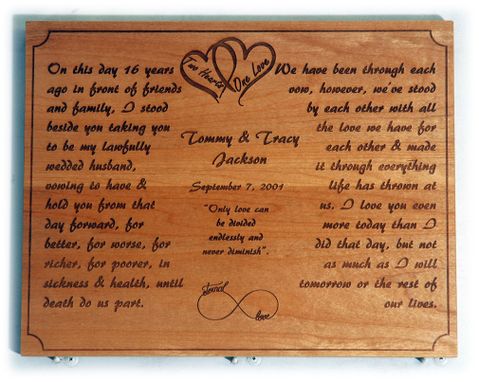 On this day 16 years
ago in front of friends
and family, I stood
beside you taking you
to be my lawfully
wedded husband,
vowing to have &
hold you from that
day forward, for
better, for worse, for
richer, for poorer, in
sickness & health, until
death do us part.
Two Hearts
One Love
Tommy & Tracy
Jackson
September 7, 2001
"Only love can
be divided
endlessly and
never diminish".
eternal
love
We have been through each
vow, however, we've stood
by each other with all
the love we have for
each other & made
it through everything
life has thrown at
us. I love you even
more today than I
did that day, but not
as much as I will
tomorrow or the rest of
our lives.